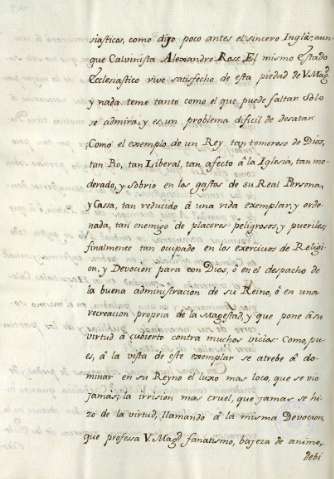 siasticos, como dijo poco antes el sincero Ingles, aun
que Calvinista Alexandro Rose. El mismo estado
Ecclesiastico vive satisfecho de esta piedad de V. Magd
y nada teme tanto como el que puede faltar. Solo
se admira, y es un problema dificil de desatar
Como el exemplo de un Rey tan temeroso de Dios,
tan Pio, tan Liberal, tan afecto à la Iglesia, tan mo
derado, y sobrio en los gastos de su Real Persona,
y Casa, tan reducido à una vida exemplar, y orde
nada, tan enemigo de placeres peligrosos, y pueriles,
finalmente tan ocupado en los exercicios de Religi
on, y Devocion para con Dios, ô en el despacho de
la buena administracion de su Reino, ô en una
recreacion propria de la Magestad, y que pone à su
virtud à cubierto contra muchos vicios: Como, pu
es, à la vista de este exemplar se atrebe à do
minar en su Reyno el luxo mas loco, que se vio
jamàs; la irrision mas cruel, que jamas se hi
zo de la virtud, llamando à la misma Devocion
que professa V. Magd fanatismo, bajeza de animo,
debi